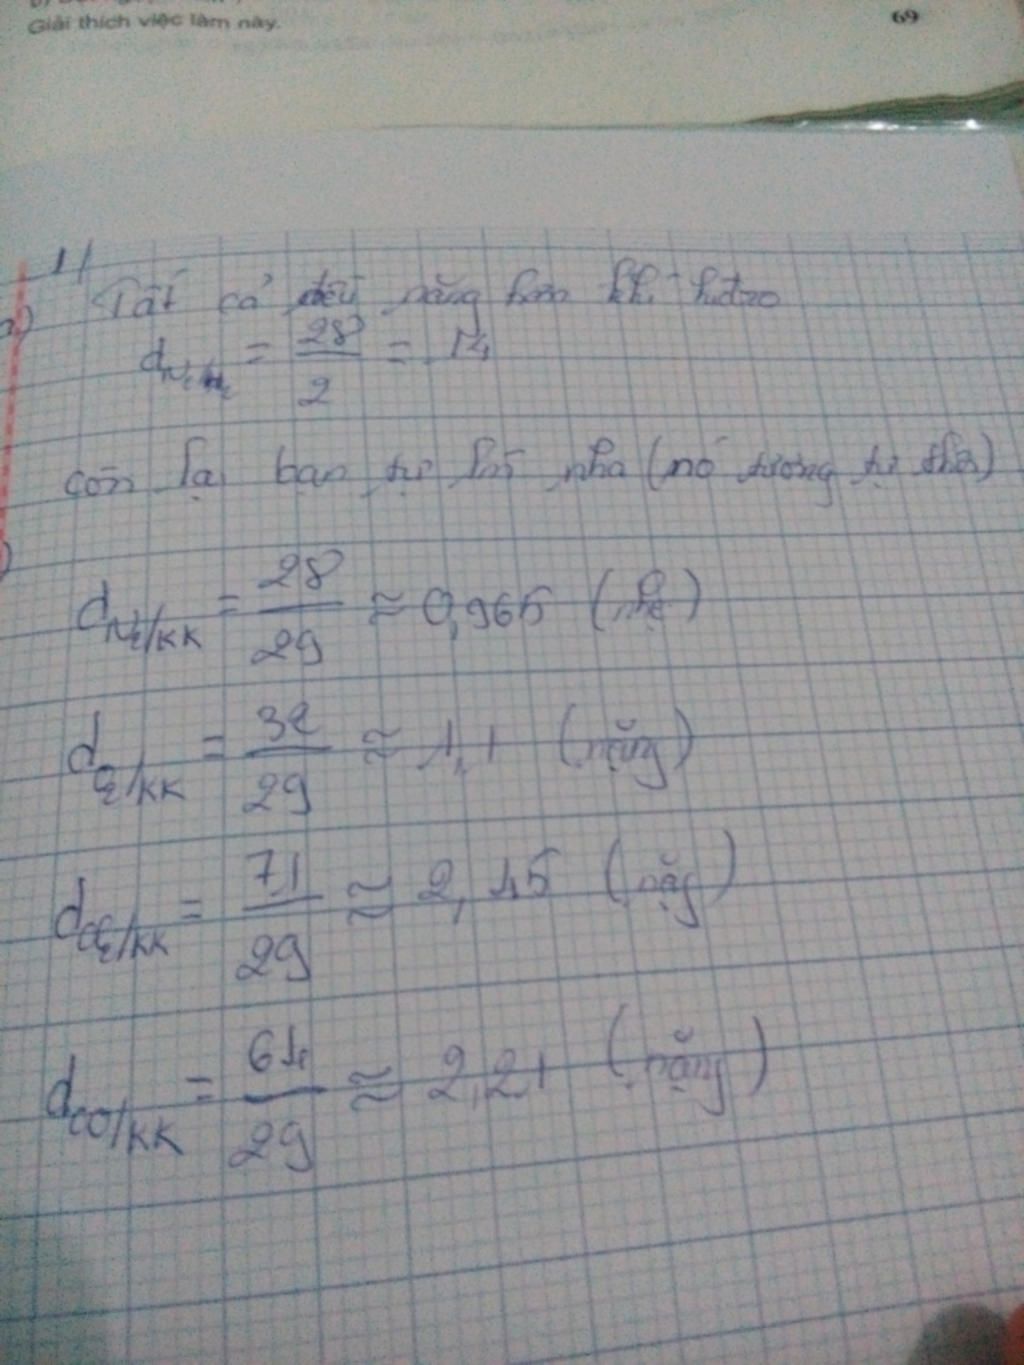 Giải thích việc làm này.
69
1/
a) Tất cả đều nặng hơn khí hiđro
dN₂/H₂ = 28/2 = 14
còn lại bạn tự tính nha (nó tương tự thôi)
) dN₂/KK = 28/29 ≈ 0,965 (nhẹ)
dO₂/KK = 32/29 ≈ 1,1 (nặng)
dCl₂/KK = 71/29 ≈ 2,45 (nặg)
dCO/KK = 64/29 ≈ 2,21 (nặng)